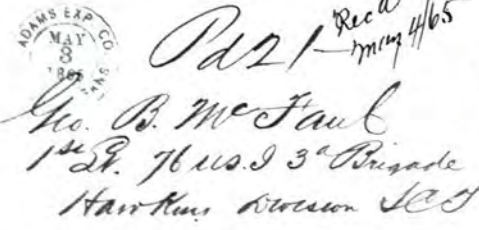 ADAMS EXP. CO.
MAY
3
1865
Pd 21 - Rec'd
May 4/65
Geo. B. McFaul
1st Lt. 76 U.S.I 3d Brigade
Hawkins Division